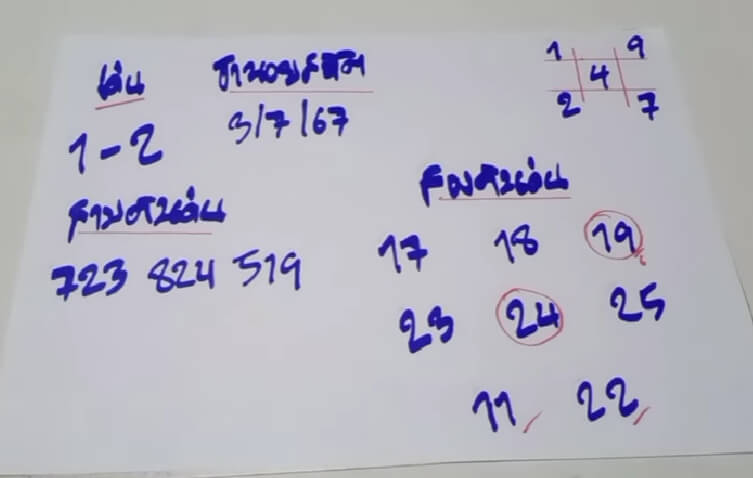 เด่น
ฮานอยพิเศษ
3/7/67
1-2
1 9
4
2 7
สามตัวเด่น
723 824 519
สองตัวเด่น
17 18 19
23 24 25
11 22